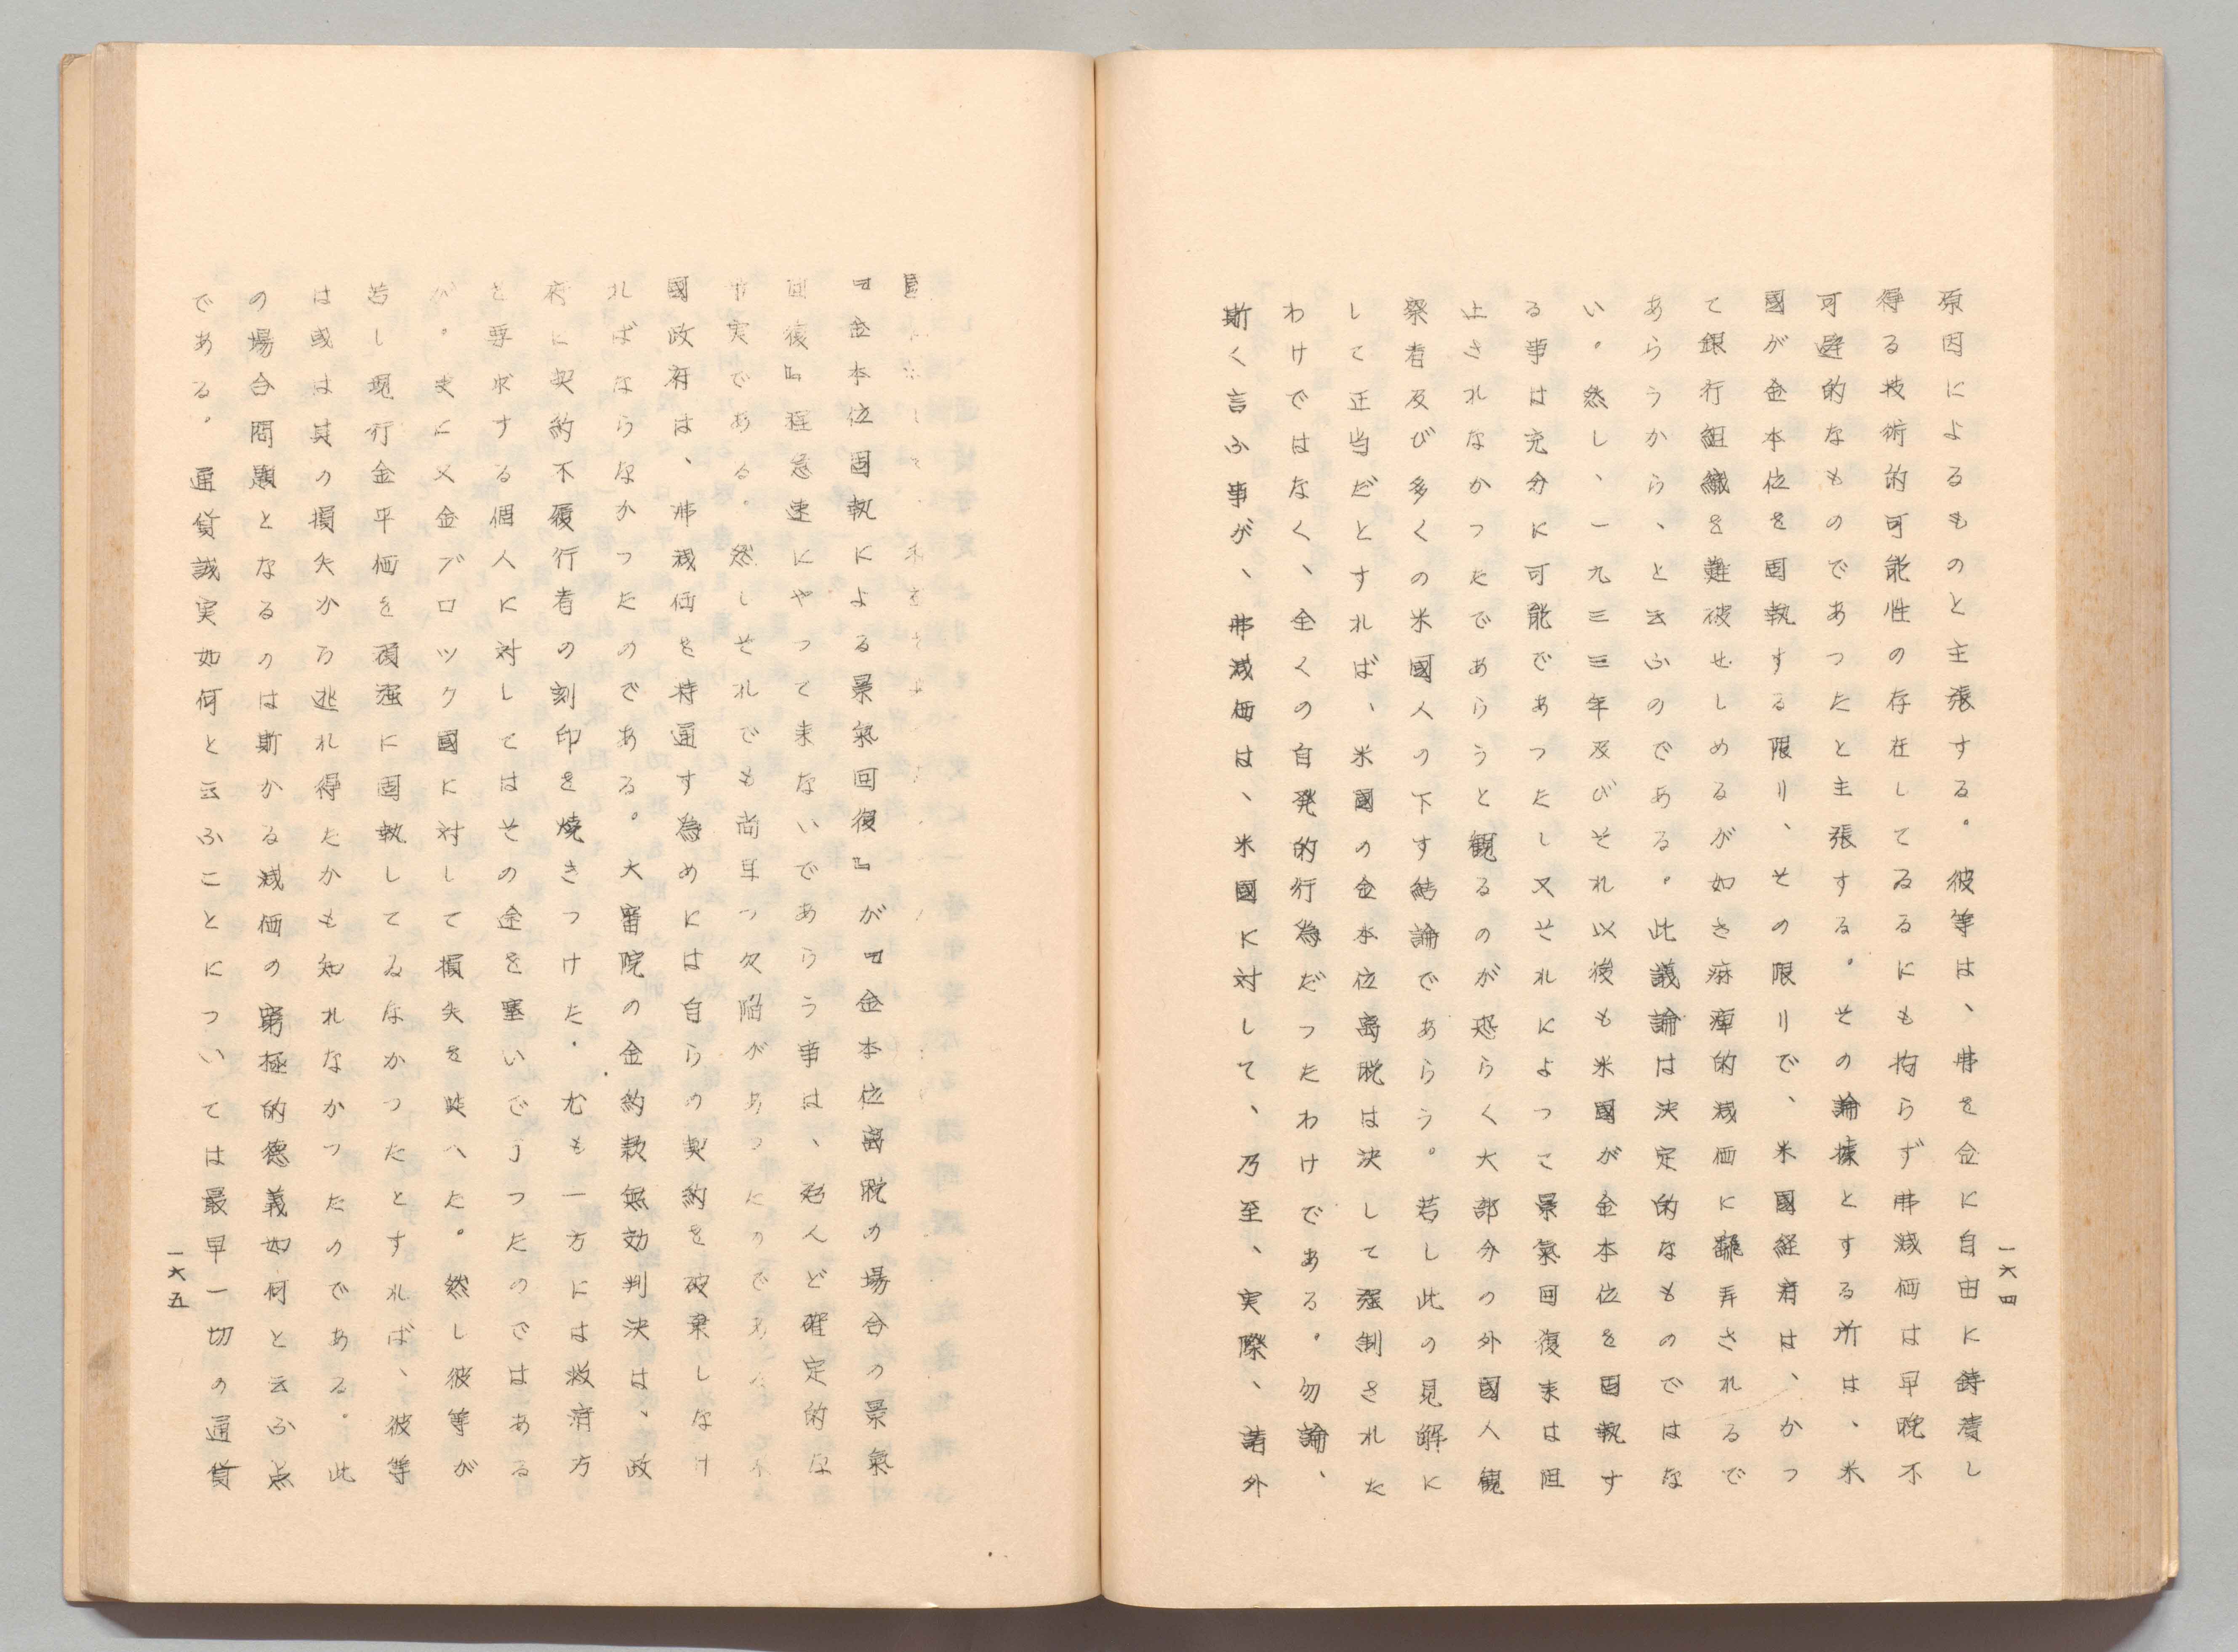 原因によるものと主張する。彼等は、弗を金に自由に鋳潰し
得る技術的可能性の存在してゐるにも拘らず弗減価は早晩不
可避的なものであつたと主張する。その論據とする所は、米
國が金本位を固執する限り、その限りで、米國経済は、かつ
て銀行組織を難破せしめるが如き痲痺的減価に飜弄されるで
あらうから、と云ふのである。此議論は決定的なものではな
い。然し、一九三三年及びそれ以後も米國が金本位を固執す
る事は充分に可能であつたし又それによつて景氣回復来は阻
止されなかつたであらうと観るのが恐らく大部分の外國人観
察者及び多くの米國人の下す結論であらう。若し此の見解に
して正当だとすれば、米國の金本位离脱は決して强制された
わけではなく、全くの自発的行為だつたわけである。勿論、
斯く言ふ事が、弗減価は、米國に対して、乃至、実際、諸外
一六四
『金本位固執による景氣回復』が『金本位离脱の場合の景氣
回復』程急速にやつて来ないであらう事は、殆んど確定的な
事実である。然しそれでも尚且つ欠陥があつたのである。
國政府は、弗減価を持通す為めには自らの契約を破棄しなけ
ればならなかつたのである。大審院の金約款無効判決は、政
府に契約不履行者の刻印を焼きつけた。尤も一方には救済方
を要求する個人に対してはその途を塞いで了つたのではある
が。更に又金ブロツク國に対して損失を與へた。然し彼等が
若し現行金平価を頑强に固執してゐなかつたとすれば、彼等
は或は其の損失から逃れ得たかも知れなかつたのである。此
の場合問題となるのは斯かる減価の窮極的徳義如何と云ふ点
である。通貨誠実如何と云ふことについては最早一切の通貨
一六五